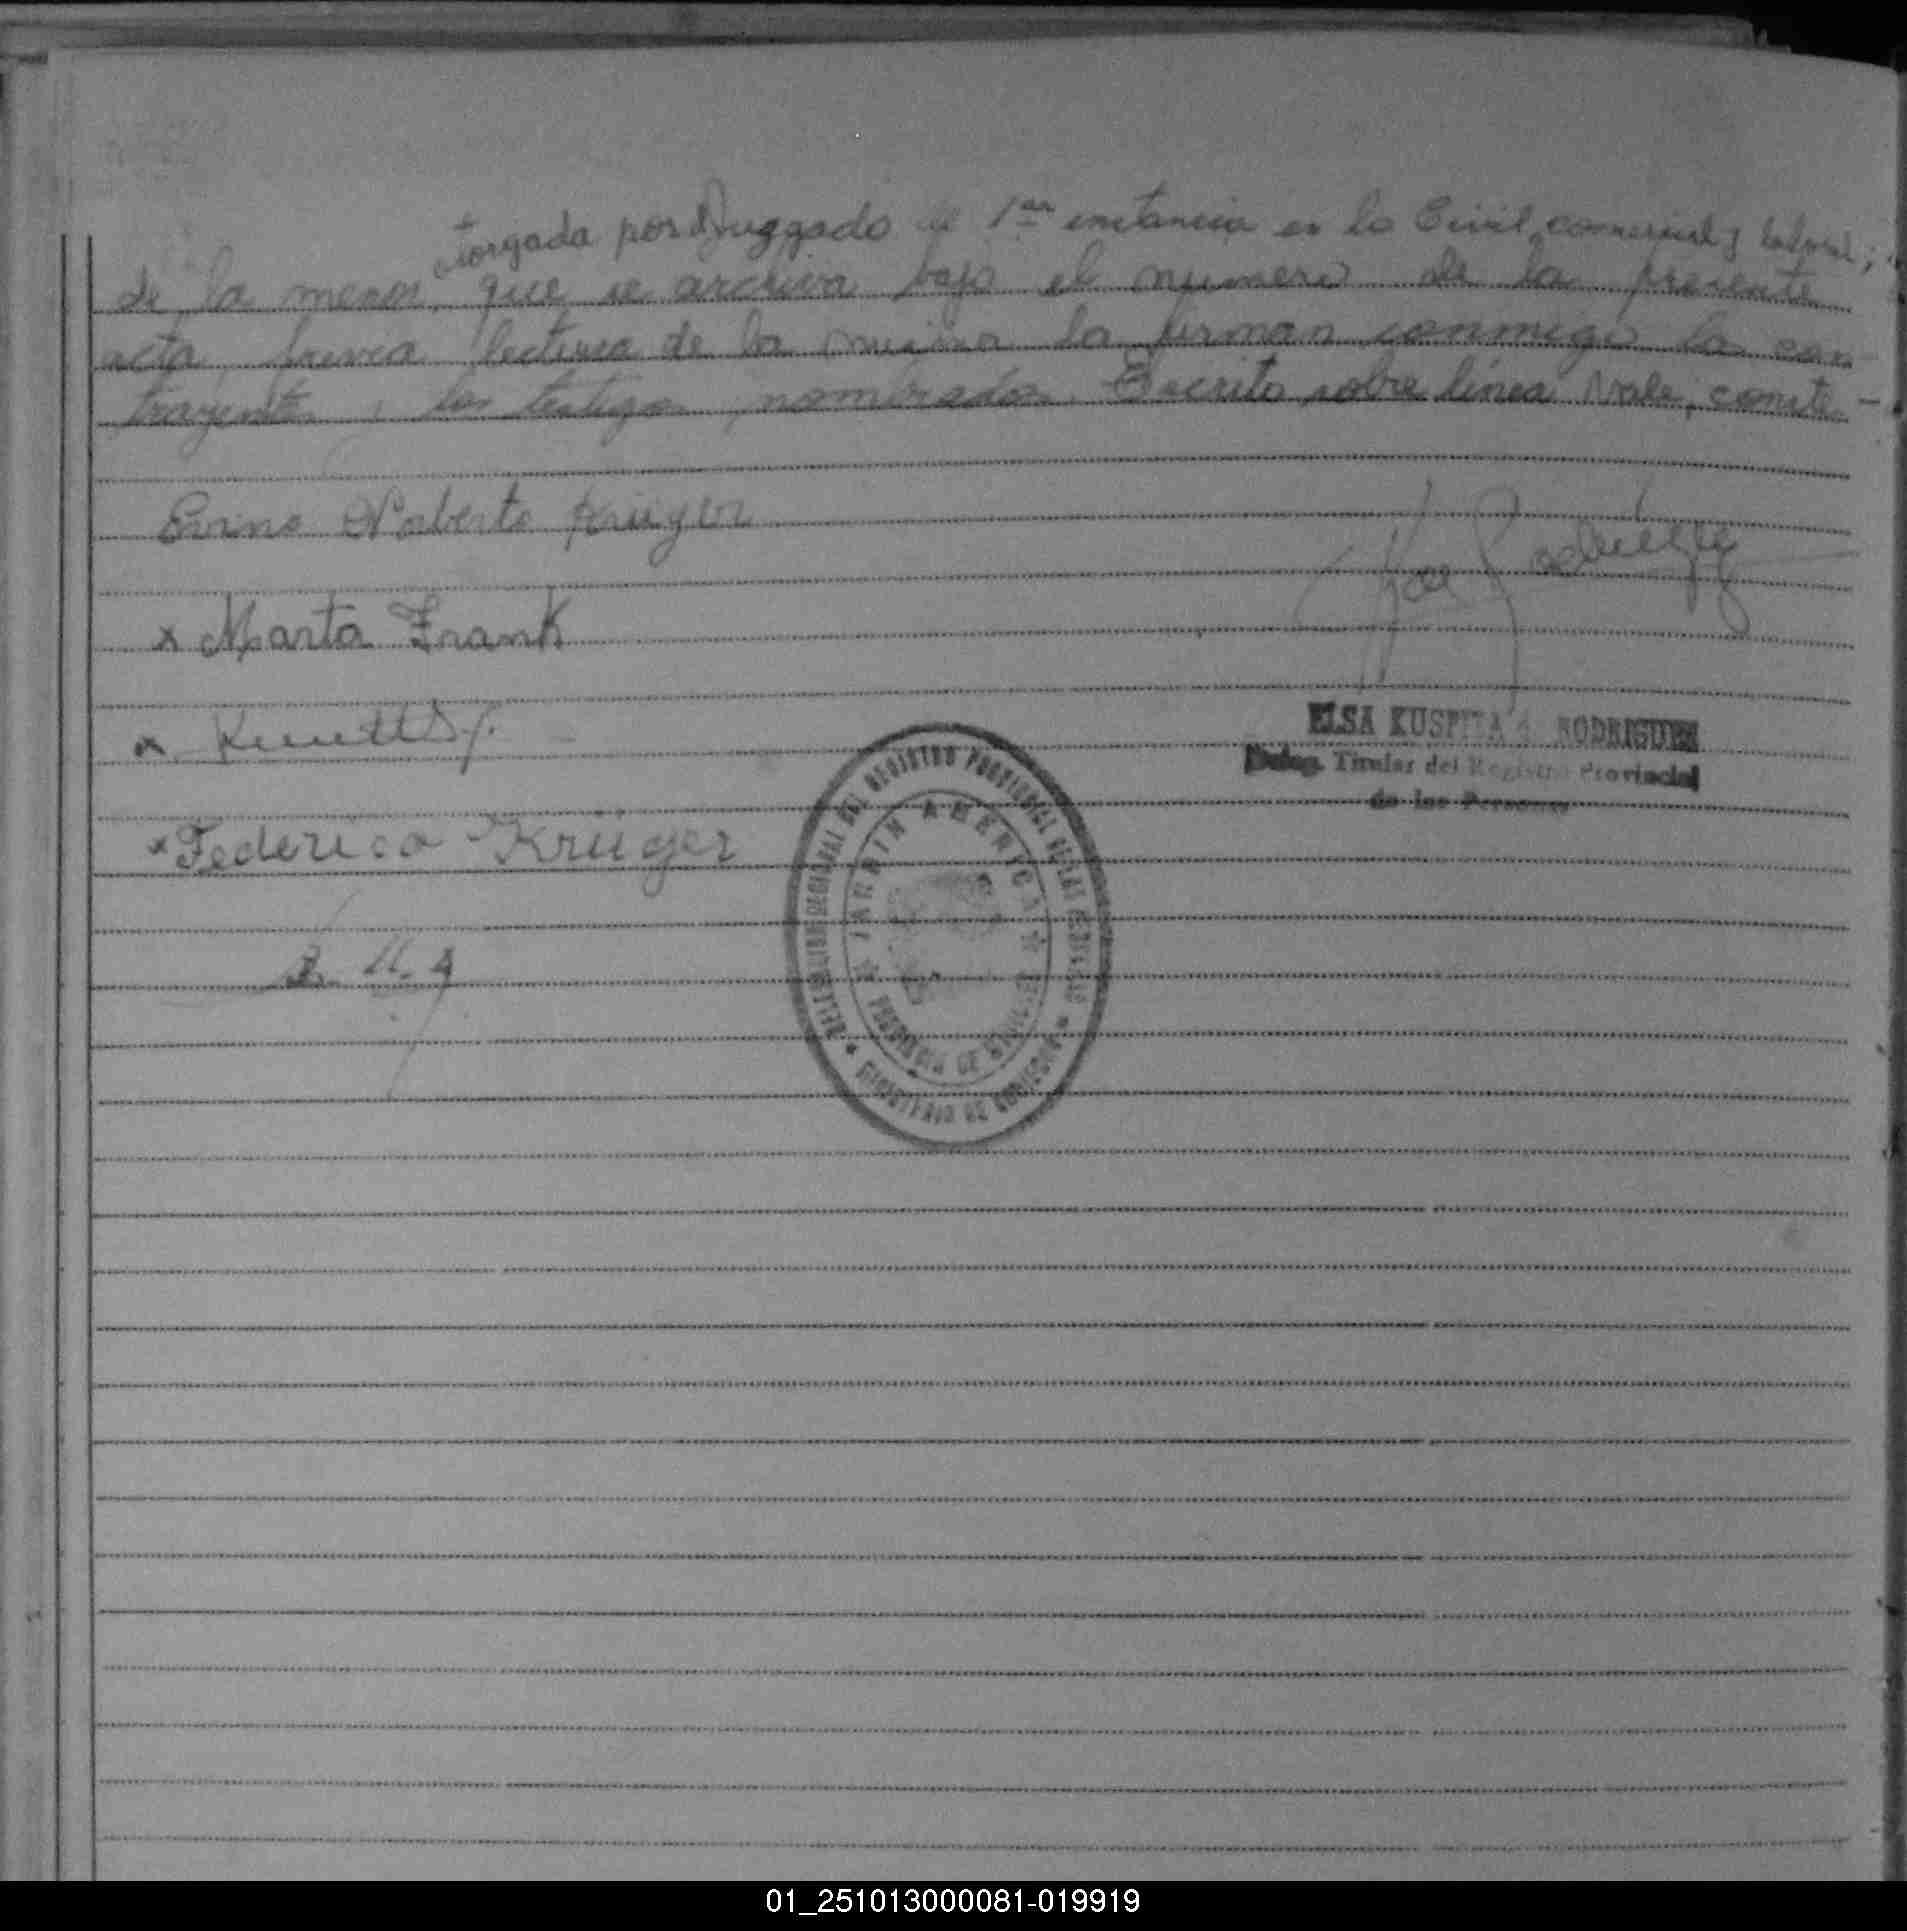 otorgada por Juzgado de 1ra instancia en lo Civil, comercial y laboral;
de la menor, que se archiva bajo el numero de la presente
acta previa lectura de la misma la firman conmigo los con-
trayentes, los testigos nombrados. Escrito sobre línea Vale, conste.-
Erino Norberto Krüger
x Marta Frank
x
x Federico Krüger
ELSA KUSPITA d. RODRIGUEZ
Deleg. Titular del Registro Provincial
de las Personas
DELEGACION REGIONAL DEL REGISTRO PROVINCIAL DE LAS PERSONAS
JARDIN AMERICA
PROVINCIA DE MISIONES
MINISTERIO DE GOBIERNO
01_251013000081-019919